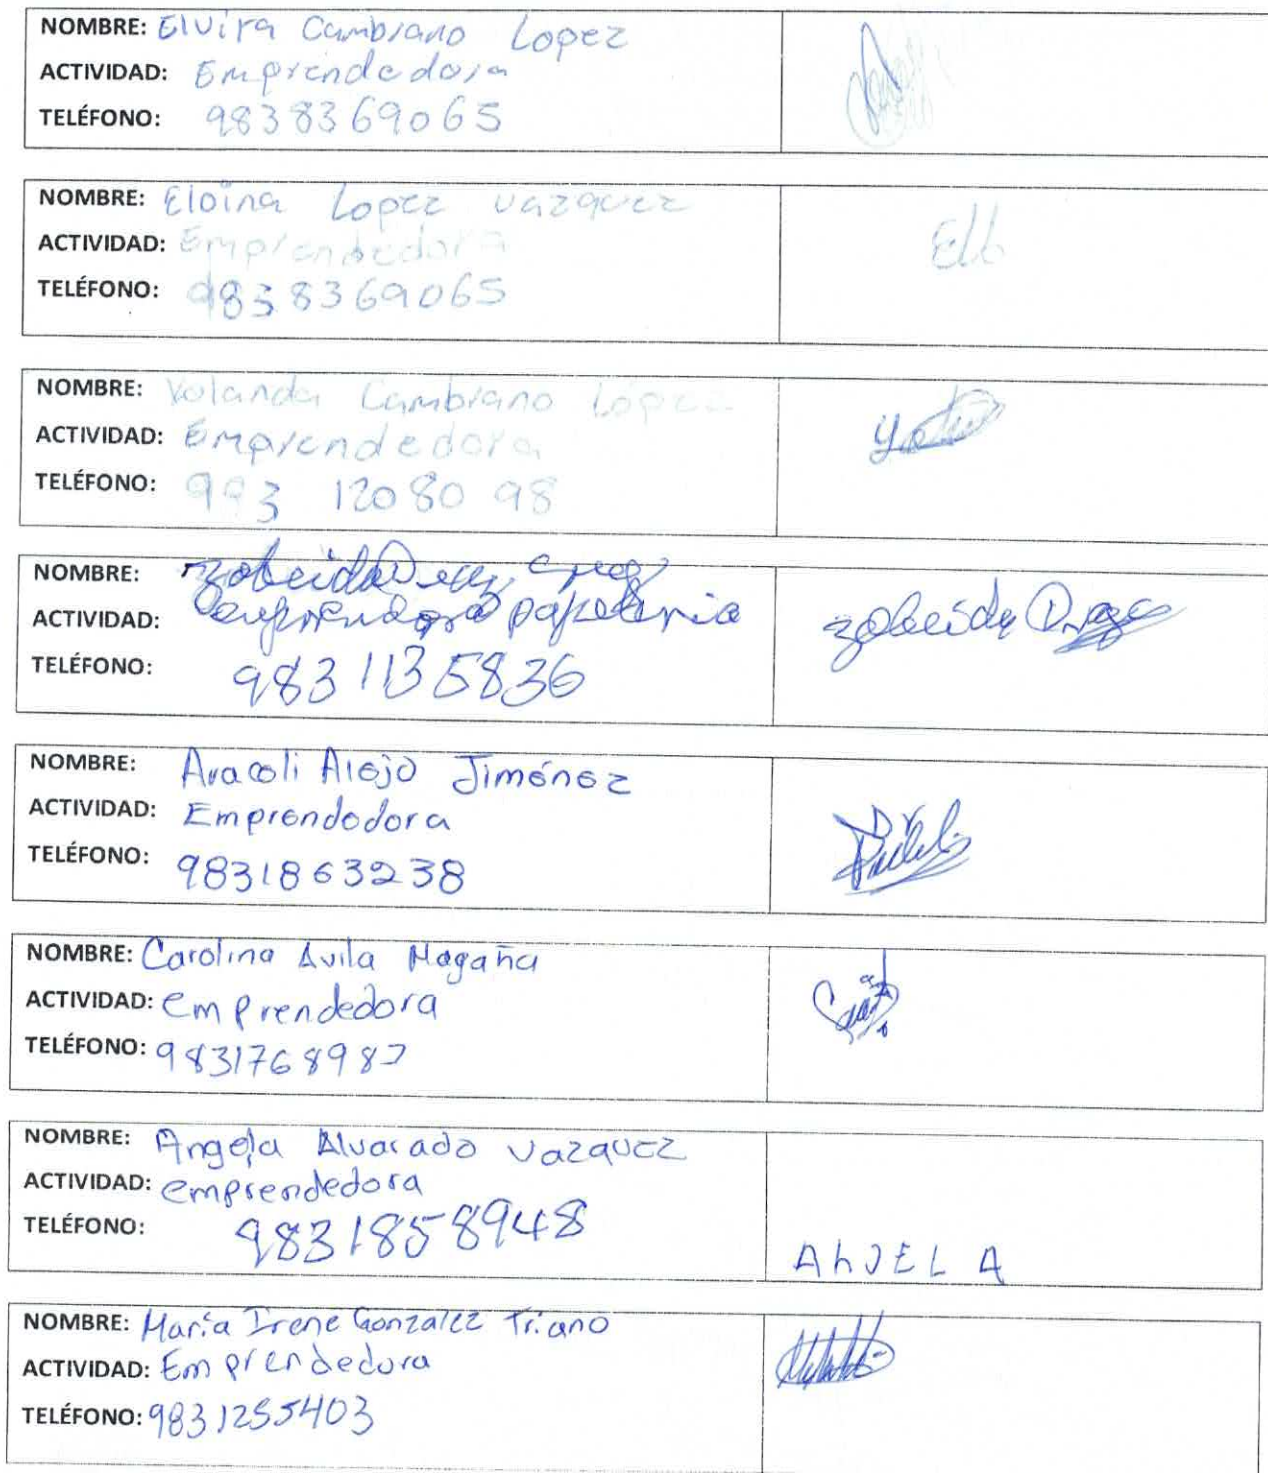 NOMBRE: Elvira Cambrano Lopez
ACTIVIDAD: Emprendedora
TELÉFONO: 9838369065
NOMBRE: Eloina Lopez vazquez
ACTIVIDAD: Emprendedora
Ell
TELÉFONO: 9838369065
NOMBRE: Yolanda Cambrano López
ACTIVIDAD: Emprendedora
TELÉFONO: 993 12080 98
NOMBRE: zobeida
ACTIVIDAD: emprendora papeleria
zobeida
TELÉFONO: 9831135836
NOMBRE: Aracoli Alejo Jiménez
ACTIVIDAD: Emprendedora
TELÉFONO: 9831863238
NOMBRE: Carolina Avila Magaña
ACTIVIDAD: emprendedora
TELÉFONO: 9831768987
NOMBRE: Angela Alvarado vazquez
ACTIVIDAD: emprendedora
TELÉFONO: 9831858948
AhJELA
NOMBRE: María Irene Gonzalez Triano
ACTIVIDAD: Emprendedora
TELÉFONO: 9831255403